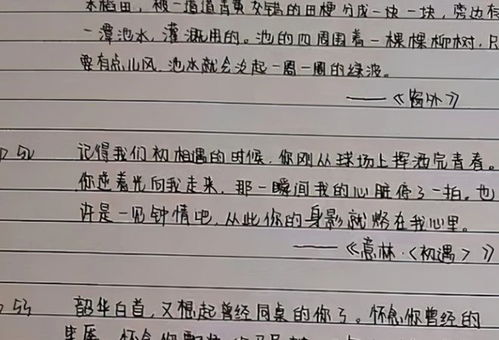 水稻田，被一道道青黄交错的田梗分成一块一块，旁边有
一潭池水，灌溉用的。池的四周围着一棵棵柳树，只
要有点儿风，池水就会泛起一圈一圈的绿波。
——《窗外》
P 52 记得我们初相遇的时候，你刚从球场上挥洒完青春。
你逆着光向我走来，那一瞬间我的心脏停了一拍。也
许是一见钟情吧，从此你的身影就烙在我心里。
——《意林·<初遇>》
55 韶华白首，又想起曾经同桌的你了。怀念你曾经的
怀念你